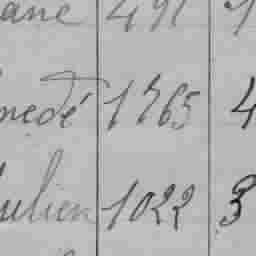 ane 491
medé 1765 4
ulien 1022 3